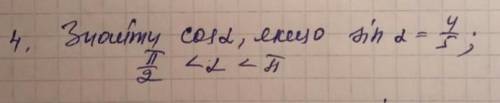 4. Знайти cosα, якщо sin α = 4/5;
π/2 < α < π